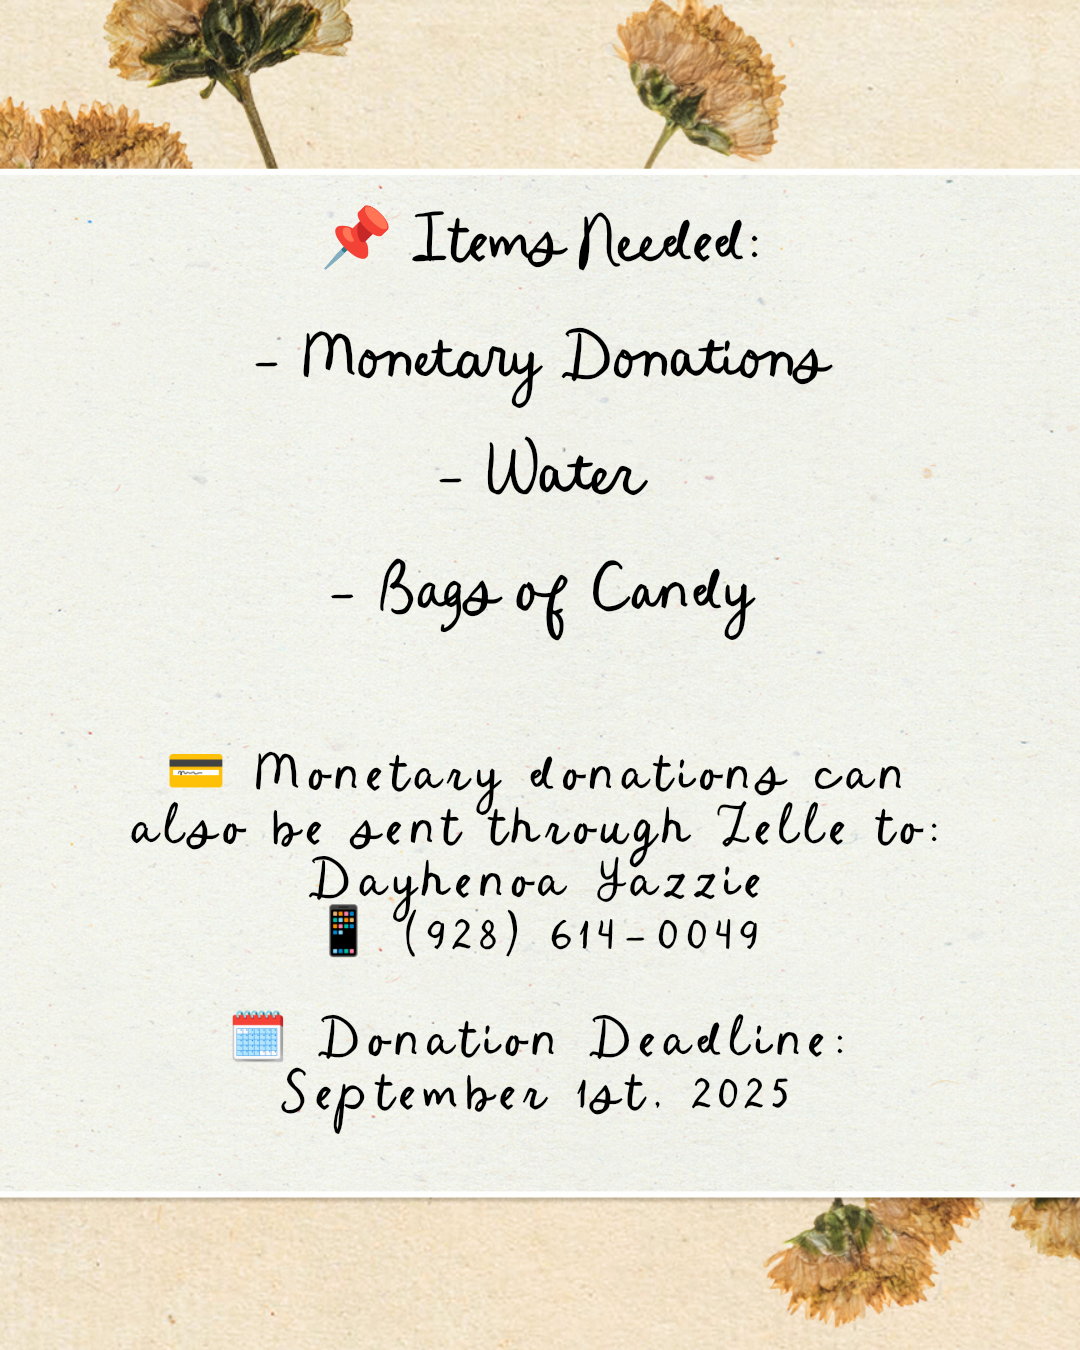 📌 Items Needed:
- Monetary Donations
- Water
- Bags of Candy
💳 Monetary donations can
also be sent through Zelle to:
Dayhenoa Yazzie
📱 (928) 614-0049
🗓️ Donation Deadline:
September 1st, 2025